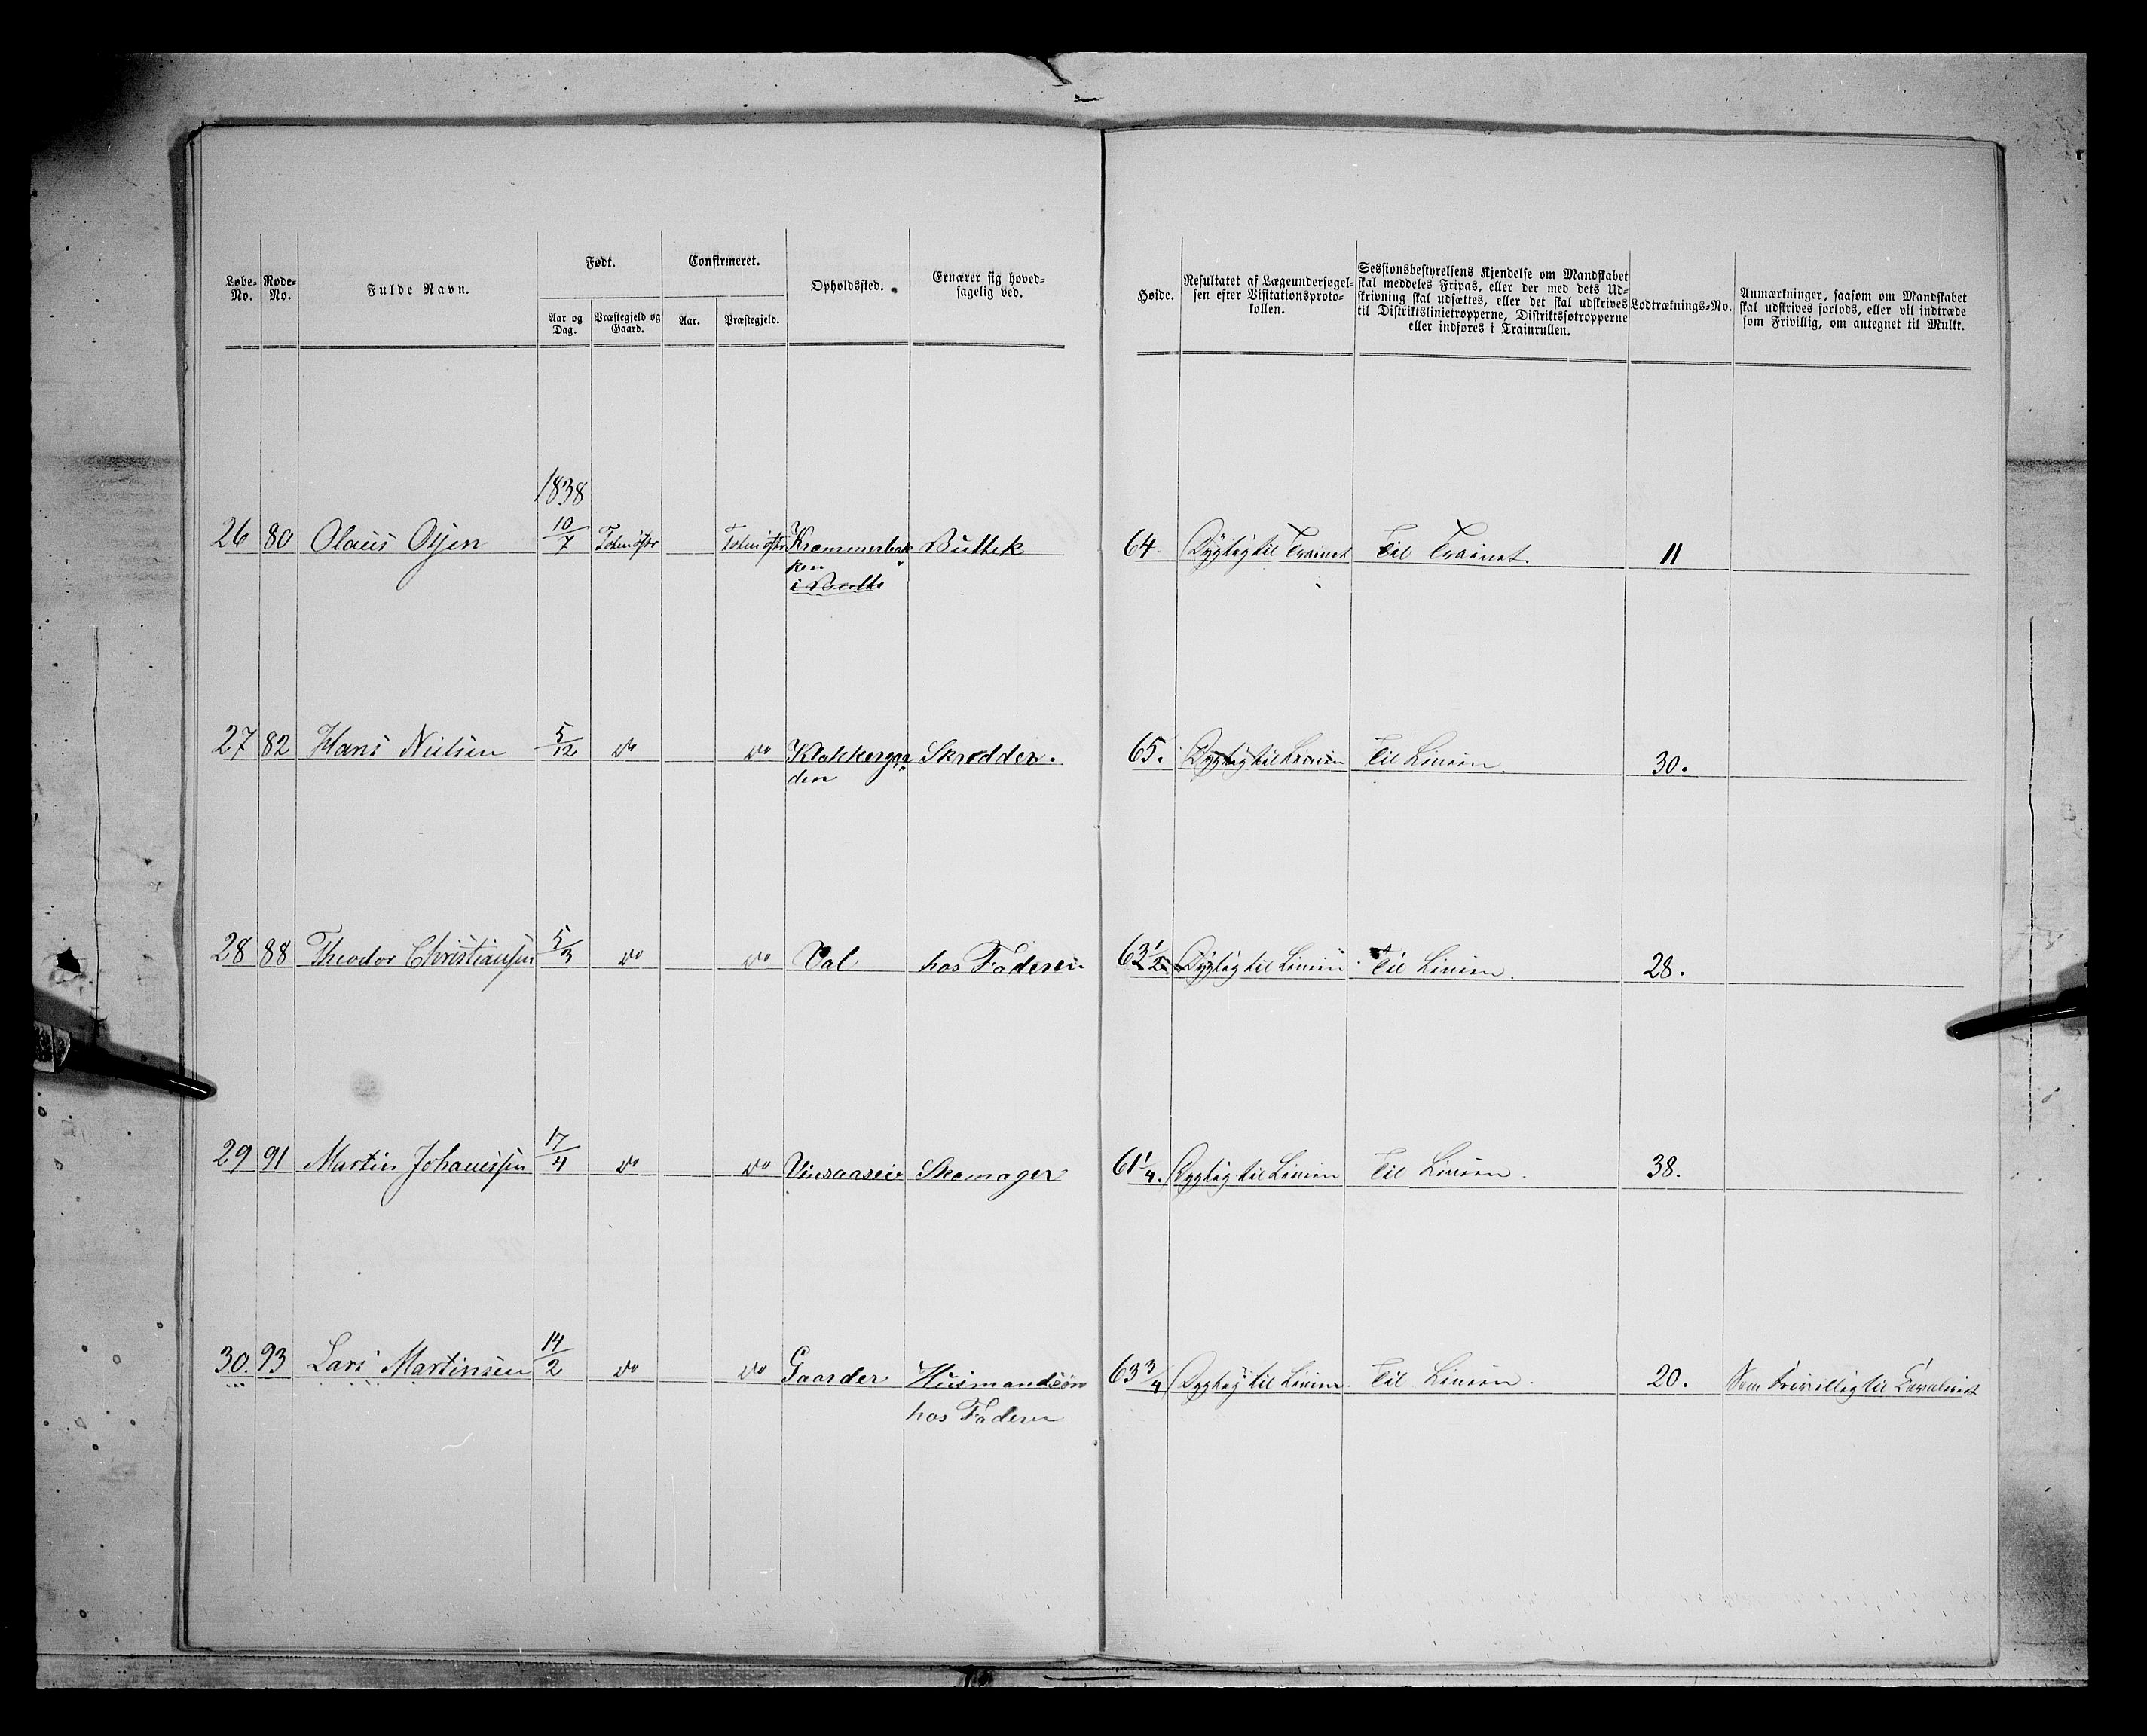 Løbe-No. Rode-No. Fulde Navn. Født. Confirmeret. Opholdssted. Ernærer sig hoved-sagelig ved.
Aar og Dag. Præstegjeld og Gaard. Aar. Præstegjeld.
Høide. Resultatet af Lægeundersøgel-sen efter Visitationsproto-kollen. Sessionsbestyrelsens Kjendelse om Mandskabet skal meddeles Fripas, eller der med dets Ud-skrivning skal udsættes, eller det skal udskrives til Distriktslinietropperne, Distriktssøtropperne eller indføres i Trainrullen. Lodtræknings-No. Anmærkninger, saasom om Mandskabet skal udskrives forlods, eller vil indtræde som Frivillig, om antegnet til Mulkt.
1838
26 80 Olaus 10/7 64 Dygtig til Trainet Til Trainet. 11
ken
27 82 Hans Nielsen 5/12 do do Klokkergaa Skrædder. 65. Dygtig til Linien Til Linien. 30.
den
28 88 Theodor Christiansen 5/3 do do Val hos Faderen 63 1/2 Dygtig til Linien Til Linien. 28.
29 91 Martin Johannesen 17/4 do do Skomager 61 1/4. Dygtig til Linien Til Linien. 38.
30. 93 Lars Martinsen 14/2 do do Gaarder Husmandsøn 63 3/4 Dygtig til Linien. Til Linien. 20. Som Frivillig til Cavaleriet
hos Faderen